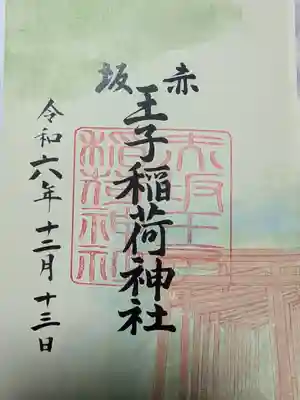 赤坂
王子稲荷神社
令和六年十二月十三日